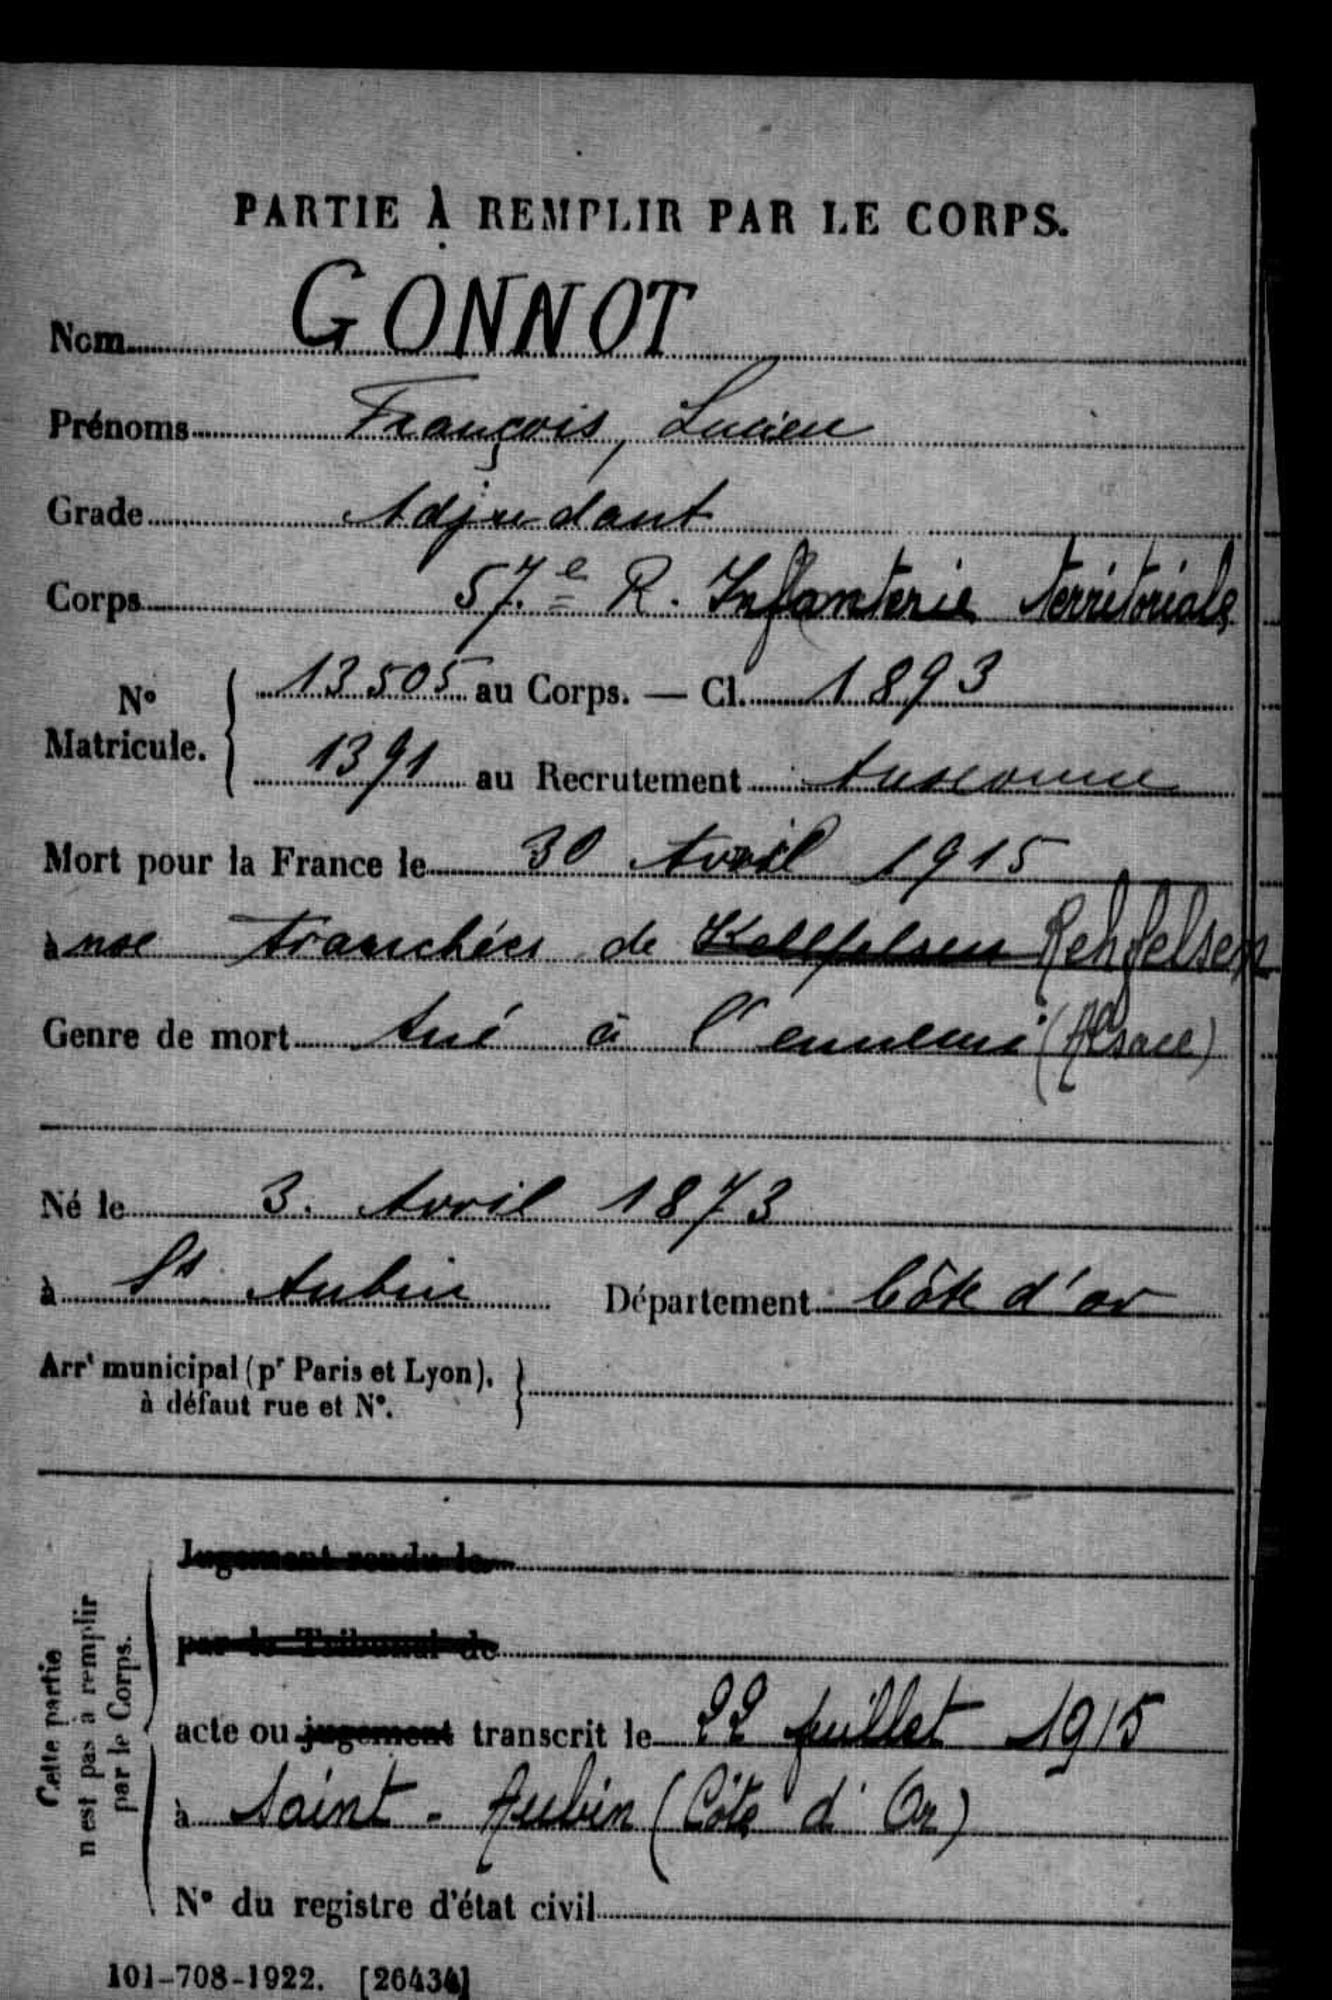 PARTIE À REMPLIR PAR LE CORPS.
Nom GONNOT
Prénoms François, Lucien
Grade Adjudant
Corps 57.e R. Infanterie territoriale
N° Matricule. { 13505 au Corps. — Cl. 1893
1391 au Recrutement Auxonne
Mort pour la France le 30 Avril 1915
à aux tranchées de Kellfelsen Rehfelsen
Genre de mort tué à l'ennemi (Alsace)
Né le 3. Avril 1873
à St Aubin Département Côte d'or
Arrt municipal (pr Paris et Lyon), }
à défaut rue et N°.
Jugement rendu le
par le Tribunal de
acte ou jugement transcrit le 22 juillet 1915
à Saint-Aubin (Côte d'Or)
N° du registre d'état civil
Cette partie
n'est pas à remplir
par le Corps.
101-708-1922. [26434]